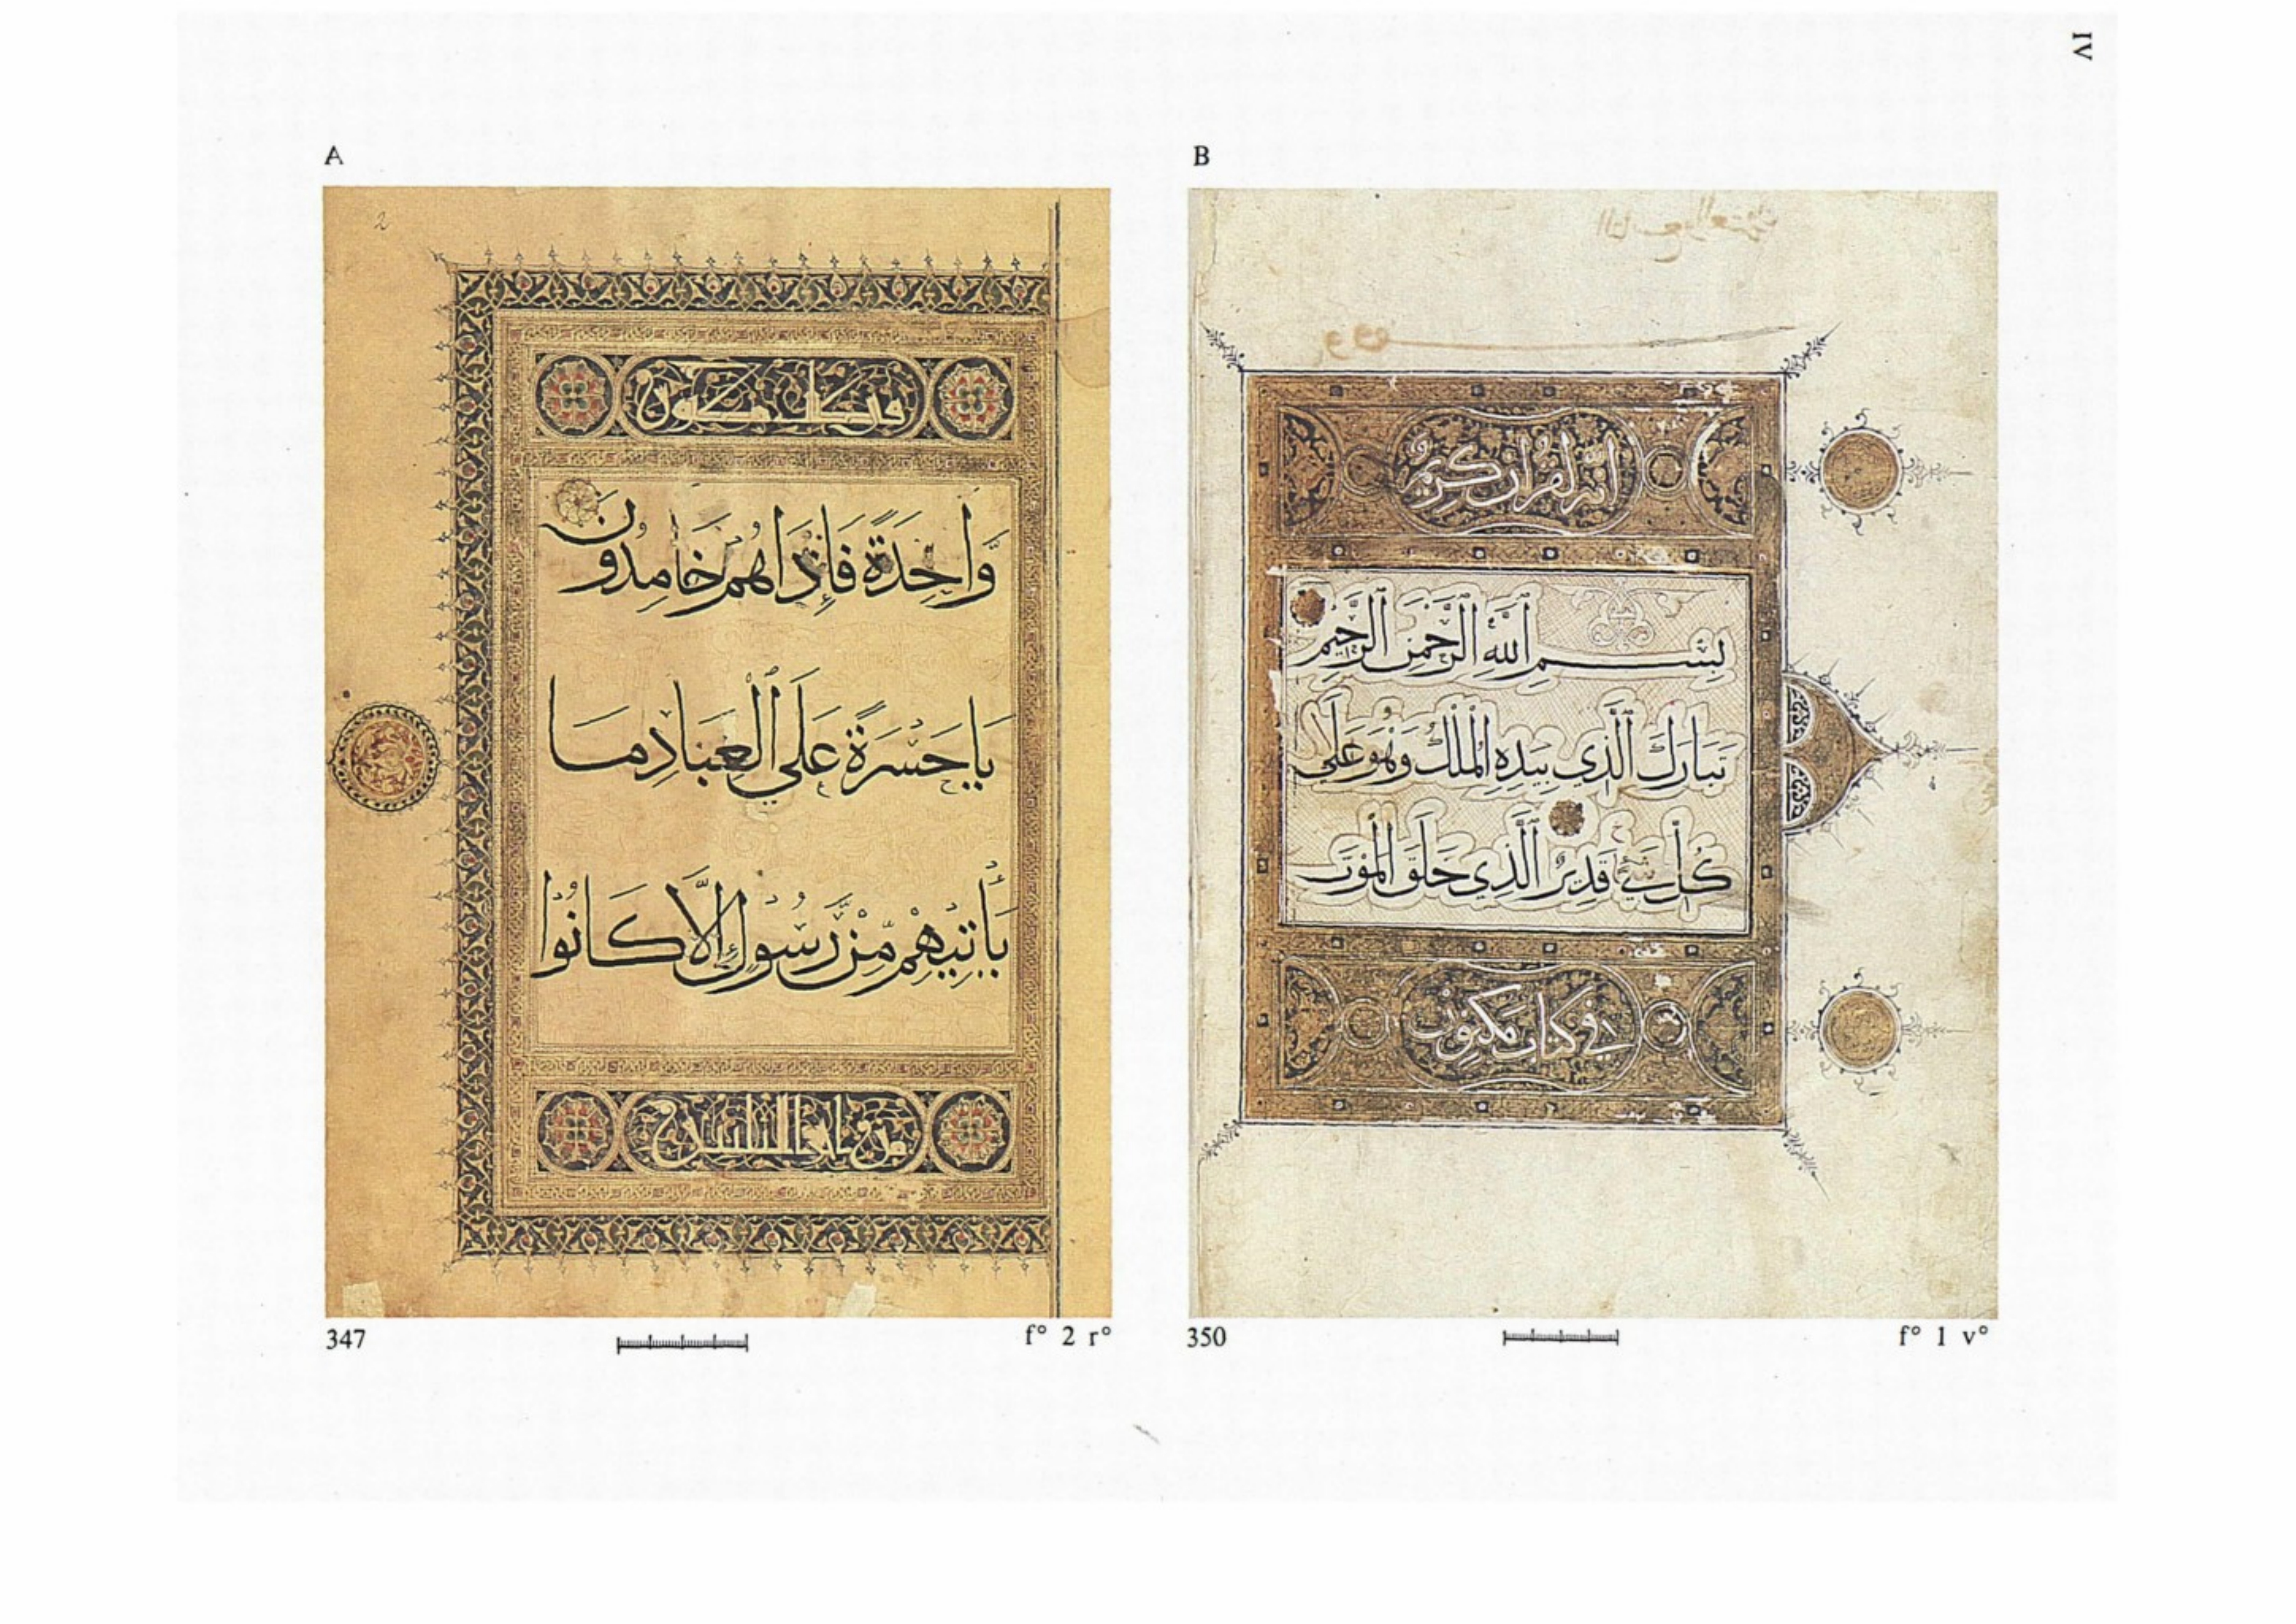 IV
A
2
في كتاب مكنون
وَّاحِدَةً فَإِذَا هُمْ خَامِدُونَ
يَا حَسْرَةً عَلَي ٱلْعِبَادِ مَا
يَأْتِيهِمْ مِّن رَّسُولٍ إِلَّا كَانُوا
من رب العالمين
347
f° 2 r°
B
انه لقرآن كريم
بِسْمِ ٱللَّهِ ٱلرَّحْمَنِ ٱلرَّحِيمِ
تَبَارَكَ ٱلَّذِي بِيَدِهِ ٱلْمُلْكُ وَهُوَ عَلَي
كُلِّ شَيْءٍ قَدِيرٌ ٱلَّذِي خَلَقَ ٱلْمَوْتَ
في كتاب مكنون
350
f° 1 v°